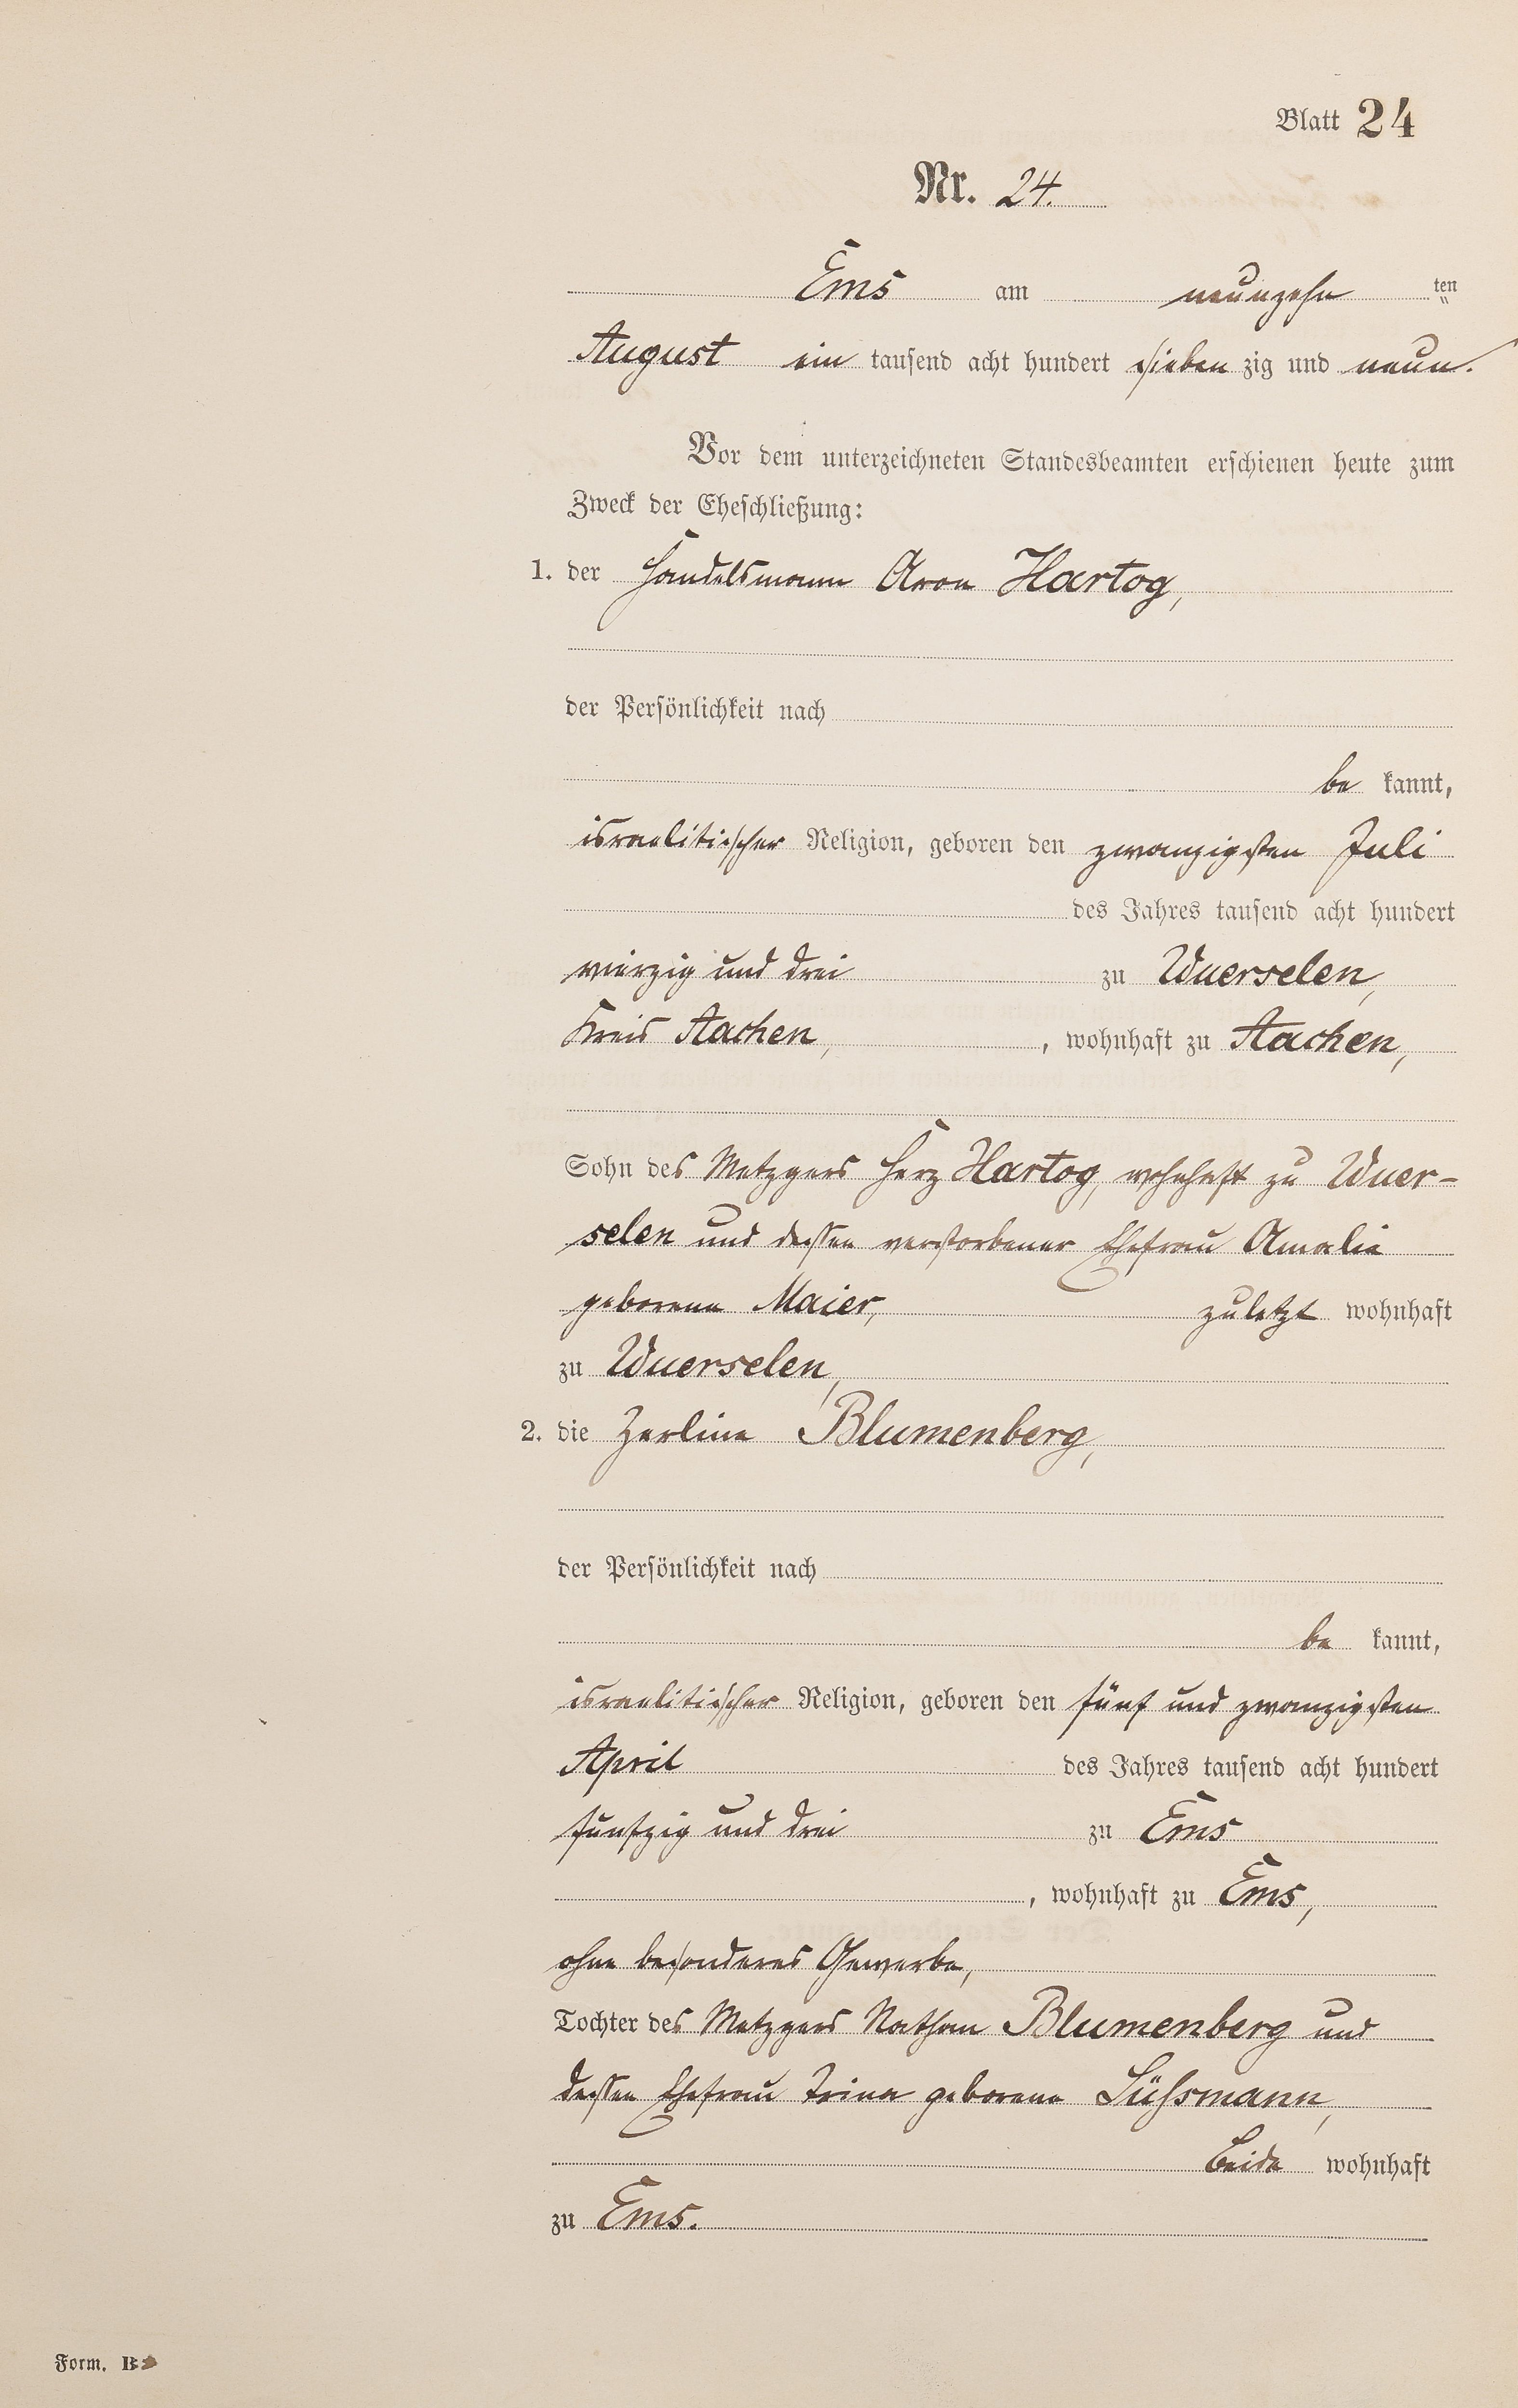 Blatt 24
Nr. 24.
Ems am neunzehn ten
August ein tausend acht hundert sieben zig und neun.
Vor dem unterzeichneten Standesbeamten erschienen heute zum
Zweck der Eheschließung:
1. der Handelsmann Aron Hartog,
der Persönlichkeit nach
be kannt,
israelitischer Religion, geboren den zwanzigsten Juli
des Jahres tausend acht hundert
vierzig und drei zu Wuerselen,
Kreis Aachen, , wohnhaft zu Aachen,
Sohn des Metzgers Herz Hartog, wohnhaft zu Wuer-
selen und dessen verstorbener Ehefrau Amalie
geborene Maier, zuletzt wohnhaft
zu Wuerselen,
2. die Zerline Blumenberg,
der Persönlichkeit nach
be kannt,
israelitischer Religion, geboren den fünf und zwanzigsten
April des Jahres tausend acht hundert
fünfzig und drei zu Ems
, wohnhaft zu Ems,
ohne besonderes Gewerbe,
Tochter des Metzgers Nathan Blumenberg und
dessen Ehefrau Trina geborene Süßsmann,
beide wohnhaft
zu Ems.
Form. B